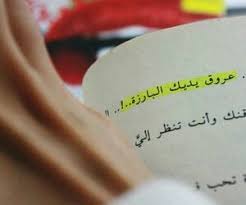 . عروق يديك البارزة..!.. ال
قنك وأنت تنظر إليَّ
ة تحب